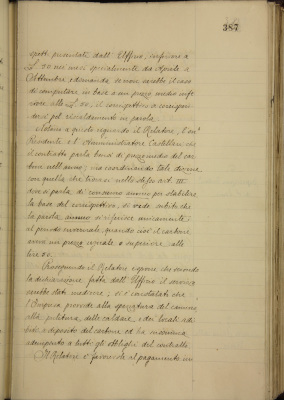 387
spott presentate dall' Uffizio, inferiore a
L. 20 nei mesi specialmente da Aprile a
Ottembre; domanda se non sarebbe il caso
di computare in base a un prezzo medio infe
riore alle L. 20, il corrispettivo a corrispon
dersi pel riscaldamento in parola.
Notano a questo riguardo il Relatore, l' on.
Presidente e il Commendatore Castellani che
il contratto parla bensì di prezzo medio del car
bone nell' anno; ma coordinando tale dizione
con quella che trovasi nello stesso art.
dove si parla di consumo annuo per stabilire
la base del corrispettivo, si vede subito che
la parola annuo si riferisce unicamente
al periodo invernale, quando cioè il carbone
aveva un prezzo eguale o superiore alle
lire 20.
Proseguendo il Relatore espone che secondo
la dichiarazione fatta dall' Uffizio il servizio
venne fatto ; si è constatato che
l' Impresa provvide alla spazzatura del camino
alla pulitura delle caldaie e dei locali adi
biti a deposito del carbone ed ha insomma
adempiuto a tutti gli obblighi del contratto.
Il Relatore è favorevole al pagamento in